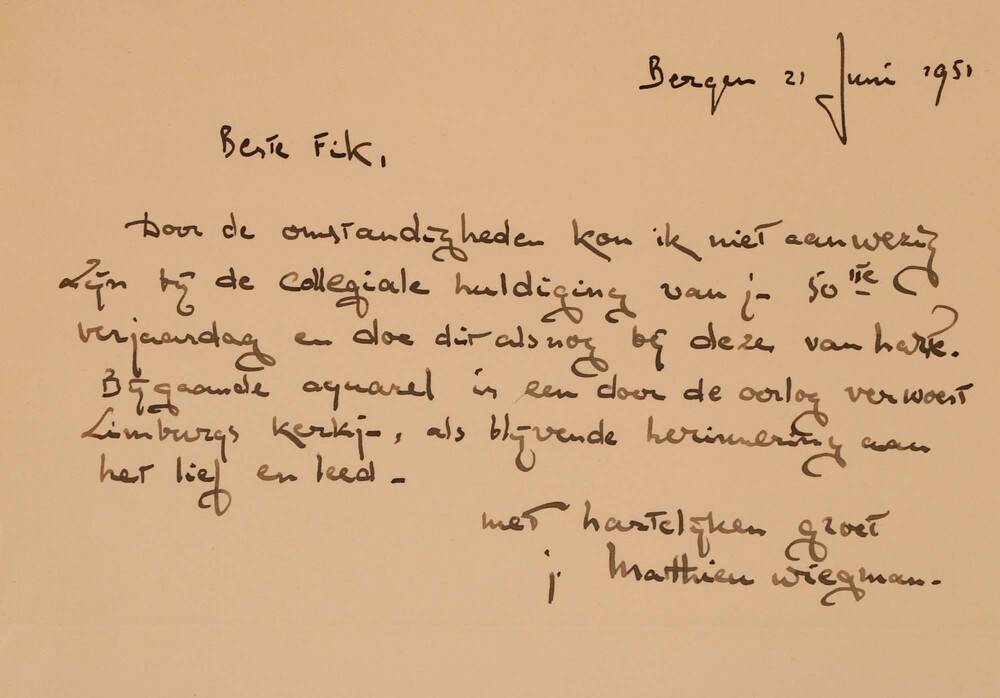 Bergen 21 Juni 1951
Beste Fik,
Door de omstandigheden kon ik niet aanwezig
zijn bij de collegiale huldiging van je 50ste
verjaardag en doe dit alsnog bij deze van harte.
Bijgaande aquarel is een door de oorlog verwoest
Limburgs kerkje, als blijvende herinnering aan
het lief en leed.
met hartelijken groet
je Matthieu Wiegman.